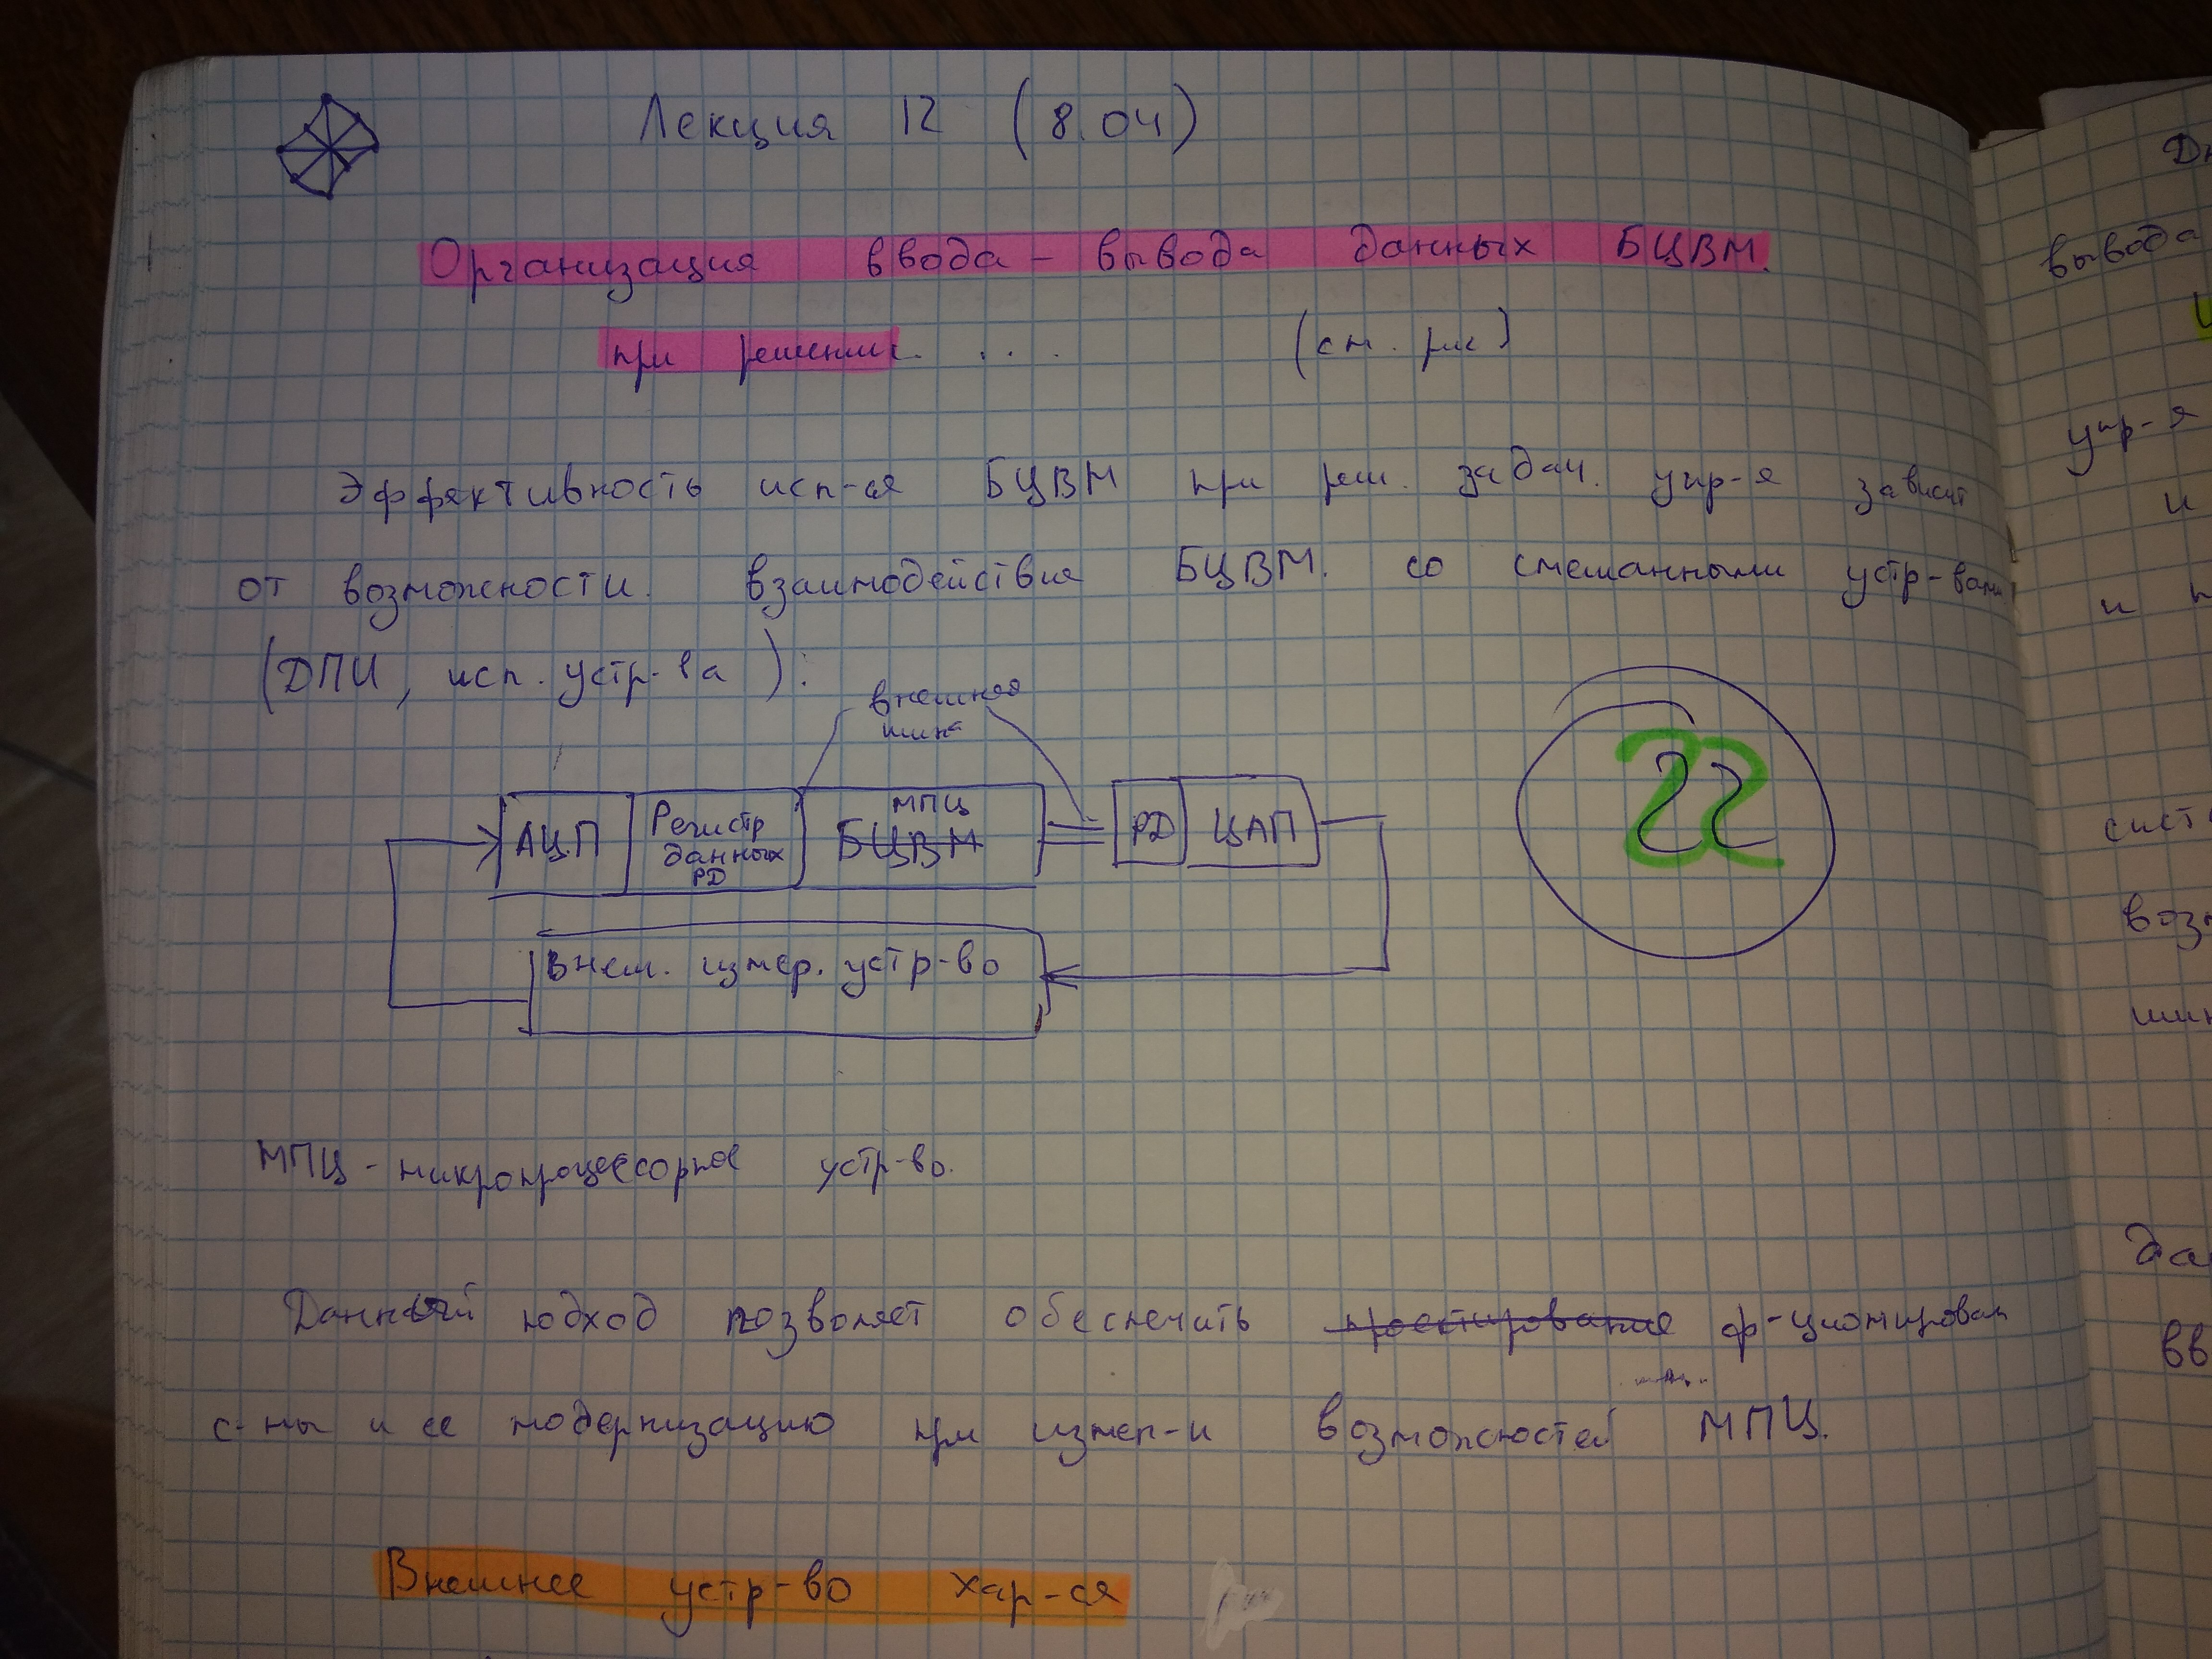 Лекция 12 (8.04)
Организация ввода-вывода данных БЦВМ.
при решении. ... (см. рис)
Эффективность исп-ся БЦВМ при реш. задач. упр-я зависит
от возможности. взаимодействия БЦВМ. со смешанными устр-вами
(ДПИ, исп. устр-ва):
внешняя
шина
АЦП
Регистр
данных
РД
МПЦ
БЦВМ
РД
ЦАП
22
Внеш. измер. устр-во
МПЦ - микропроцессорное устр-во.
Данный подход позволяет обеспечить проектирование ф-ционирован
с-мы и ее модернизацию при измен-и возможностей МПЦ.
Внешнее устр-во хар-ся
Дн
вывода
упр-я
и
и
сист
возм
шин
дан
вв